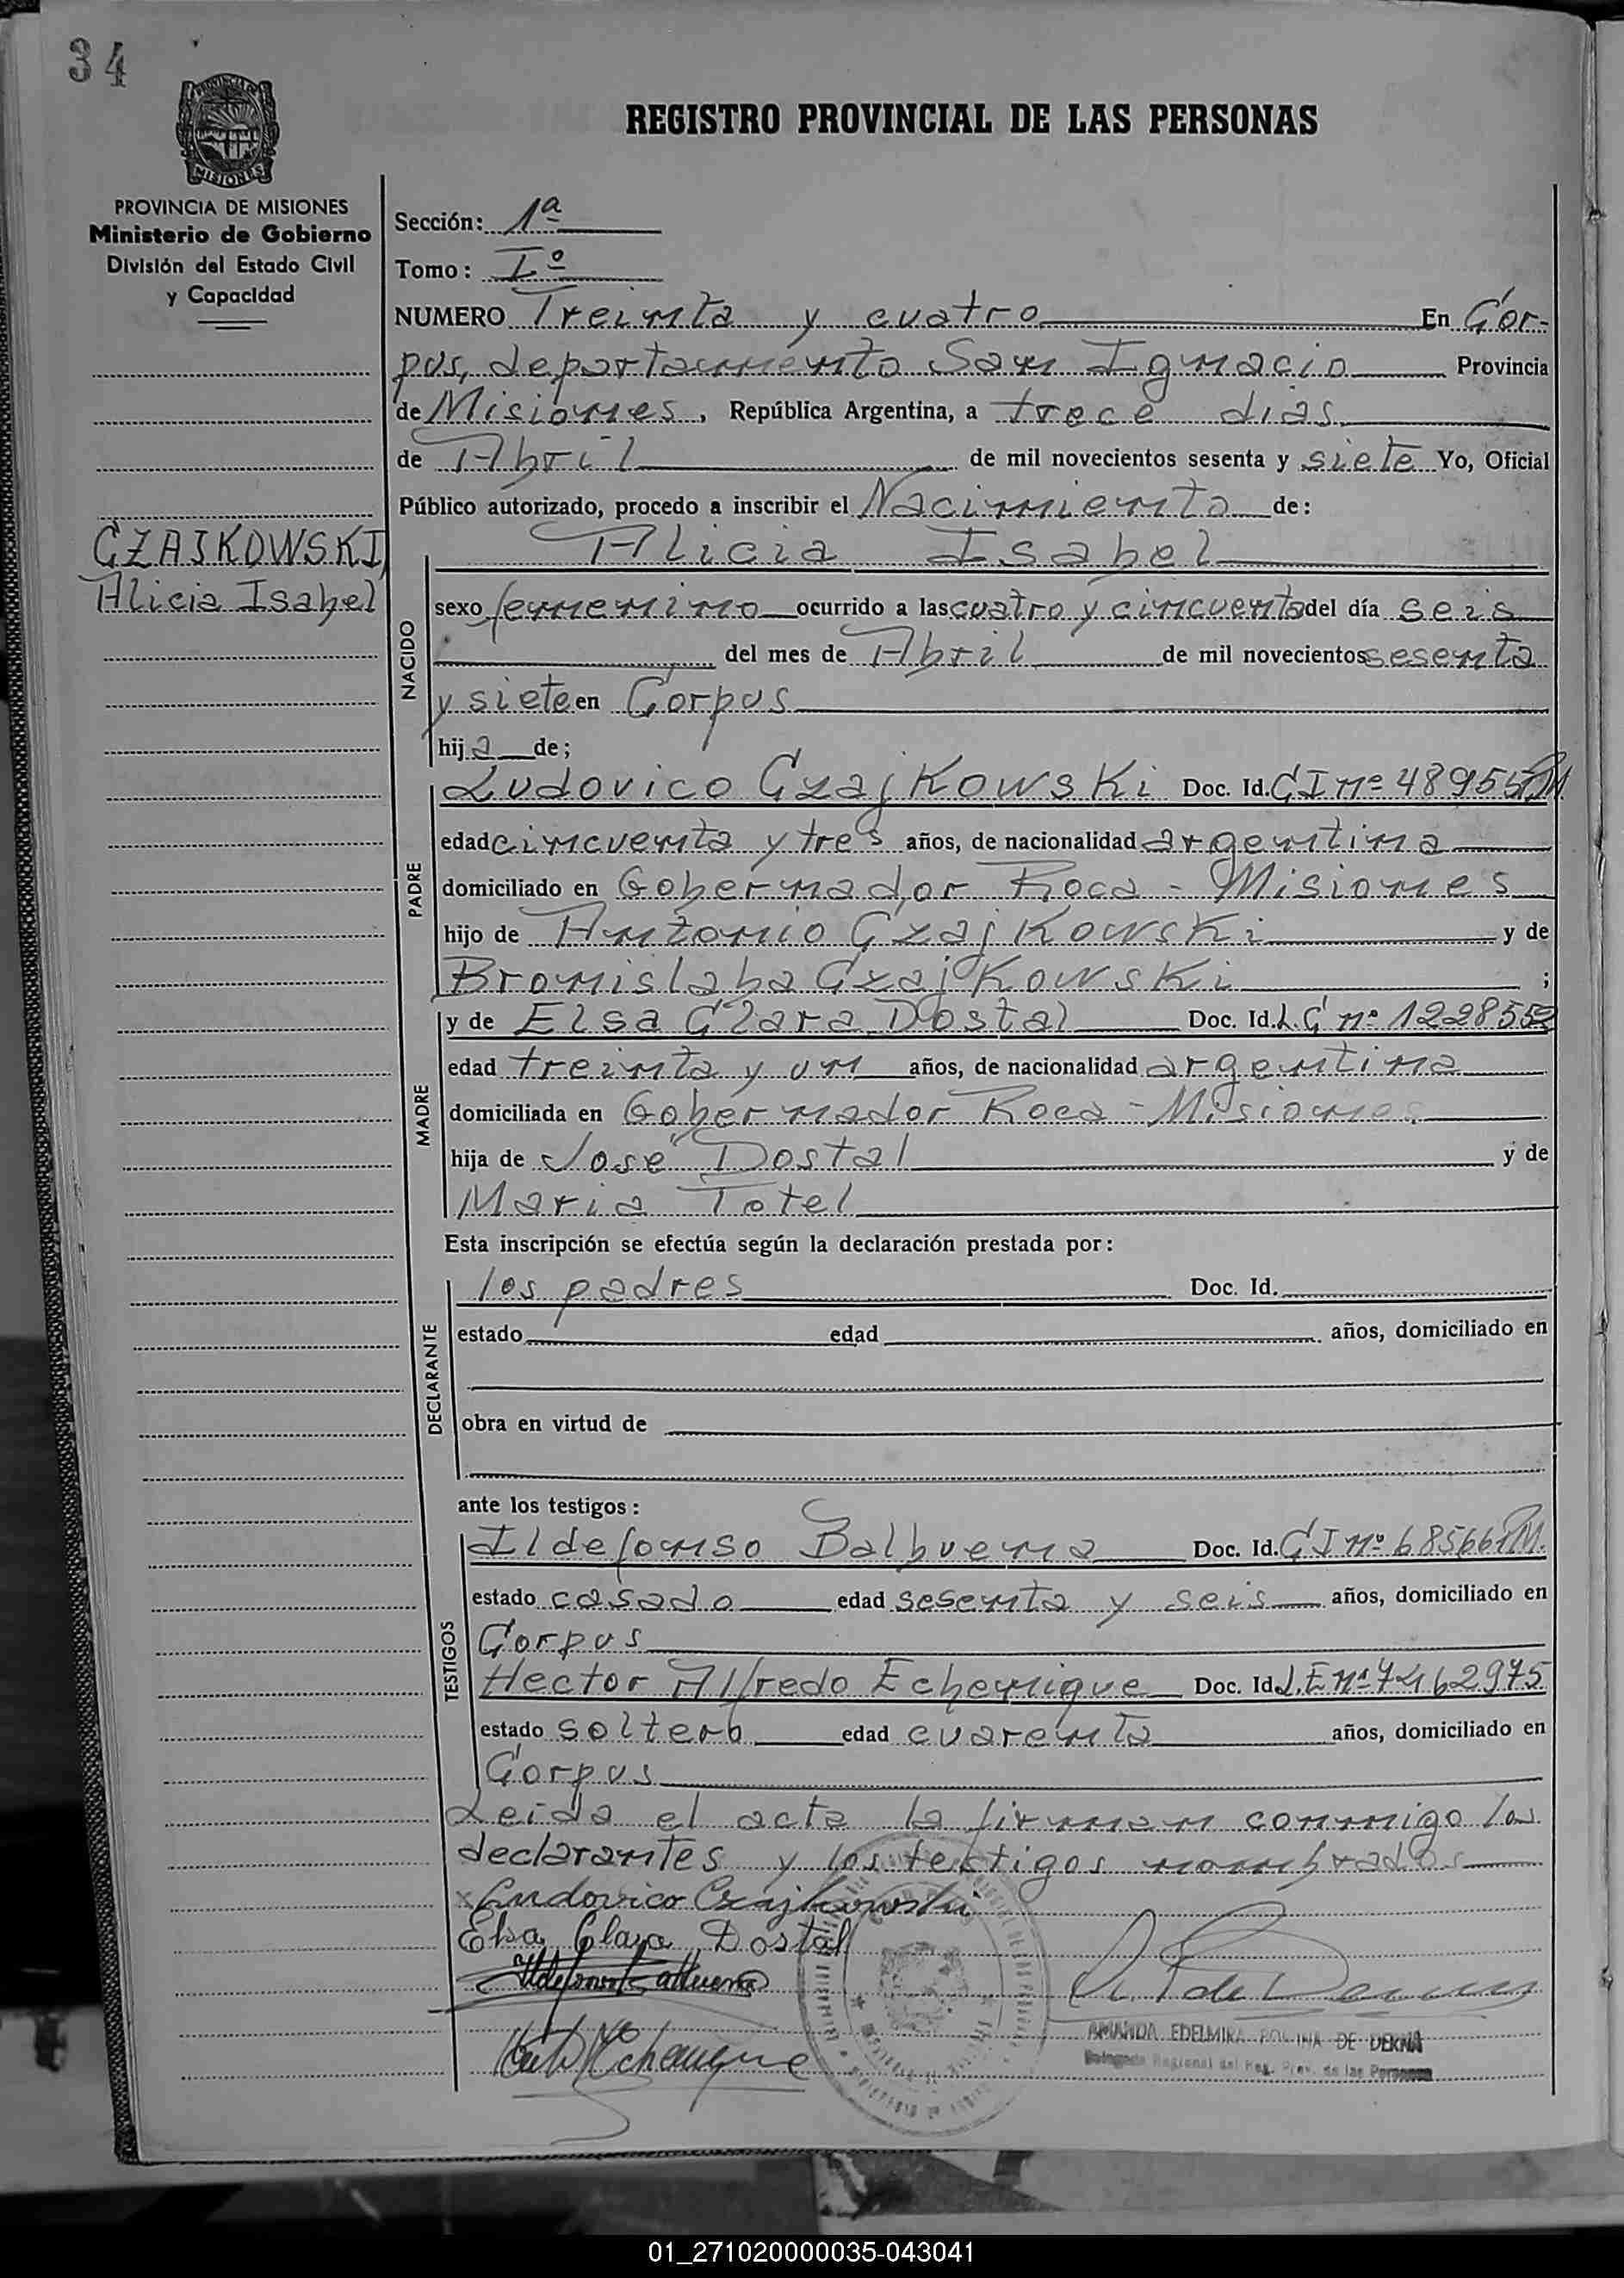 34
PROVINCIA DE MISIONES
Ministerio de Gobierno
División del Estado Civil
y Capacidad
CZAJKOWSKI,
Alicia Isabel
REGISTRO PROVINCIAL DE LAS PERSONAS
Sección: 1ª
Tomo: Iº
NUMERO Treinta y cuatro En Cor-
pus, departamento San Ignacio Provincia
de Misiones, República Argentina, a trece dias
de Abril de mil novecientos sesenta y siete Yo, Oficial
Público autorizado, procedo a inscribir el Nacimiento de:
Alicia Isabel
NACIDO
sexo femenino ocurrido a las cuatro y cincuenta del día seis
del mes de Abril de mil novecientos sesenta
y siete en Corpus
hija de;
PADRE
Ludovico Czajkowski Doc. Id. C I nº
edad cincuenta y tres años, de nacionalidad argentina
domiciliado en Gobernador Roca - Misiones
hijo de Antonio Czajkowski y de
Bronislaba Czajkowski ;
MADRE
y de Elsa Clara Dostal Doc. Id. L. C nº 1228552
edad treinta y un años, de nacionalidad argentina
domiciliada en Gobernador Roca - Misiones
hija de José Dostal y de
Maria Totel
Esta inscripción se efectúa según la declaración prestada por:
DECLARANTE
los padres Doc. Id.
estado edad años, domiciliado en
obra en virtud de
ante los testigos:
TESTIGOS
Ildefonso Balbuena Doc. Id. C I nº
estado casado edad sesenta y seis años, domiciliado en
Corpus
Hector Alfredo Echenique Doc. Id. L. E nº
estado soltero edad cuarenta años, domiciliado en
Corpus
Leida el acta la firman conmigo los
declarantes y los testigos nombrados
x Ludovico Czajkowski
Elsa Clara Dostal
AMANDA EDELMIRA DE
Delegada Regional del Reg. Prov. de las Personas
01_271020000035-043041